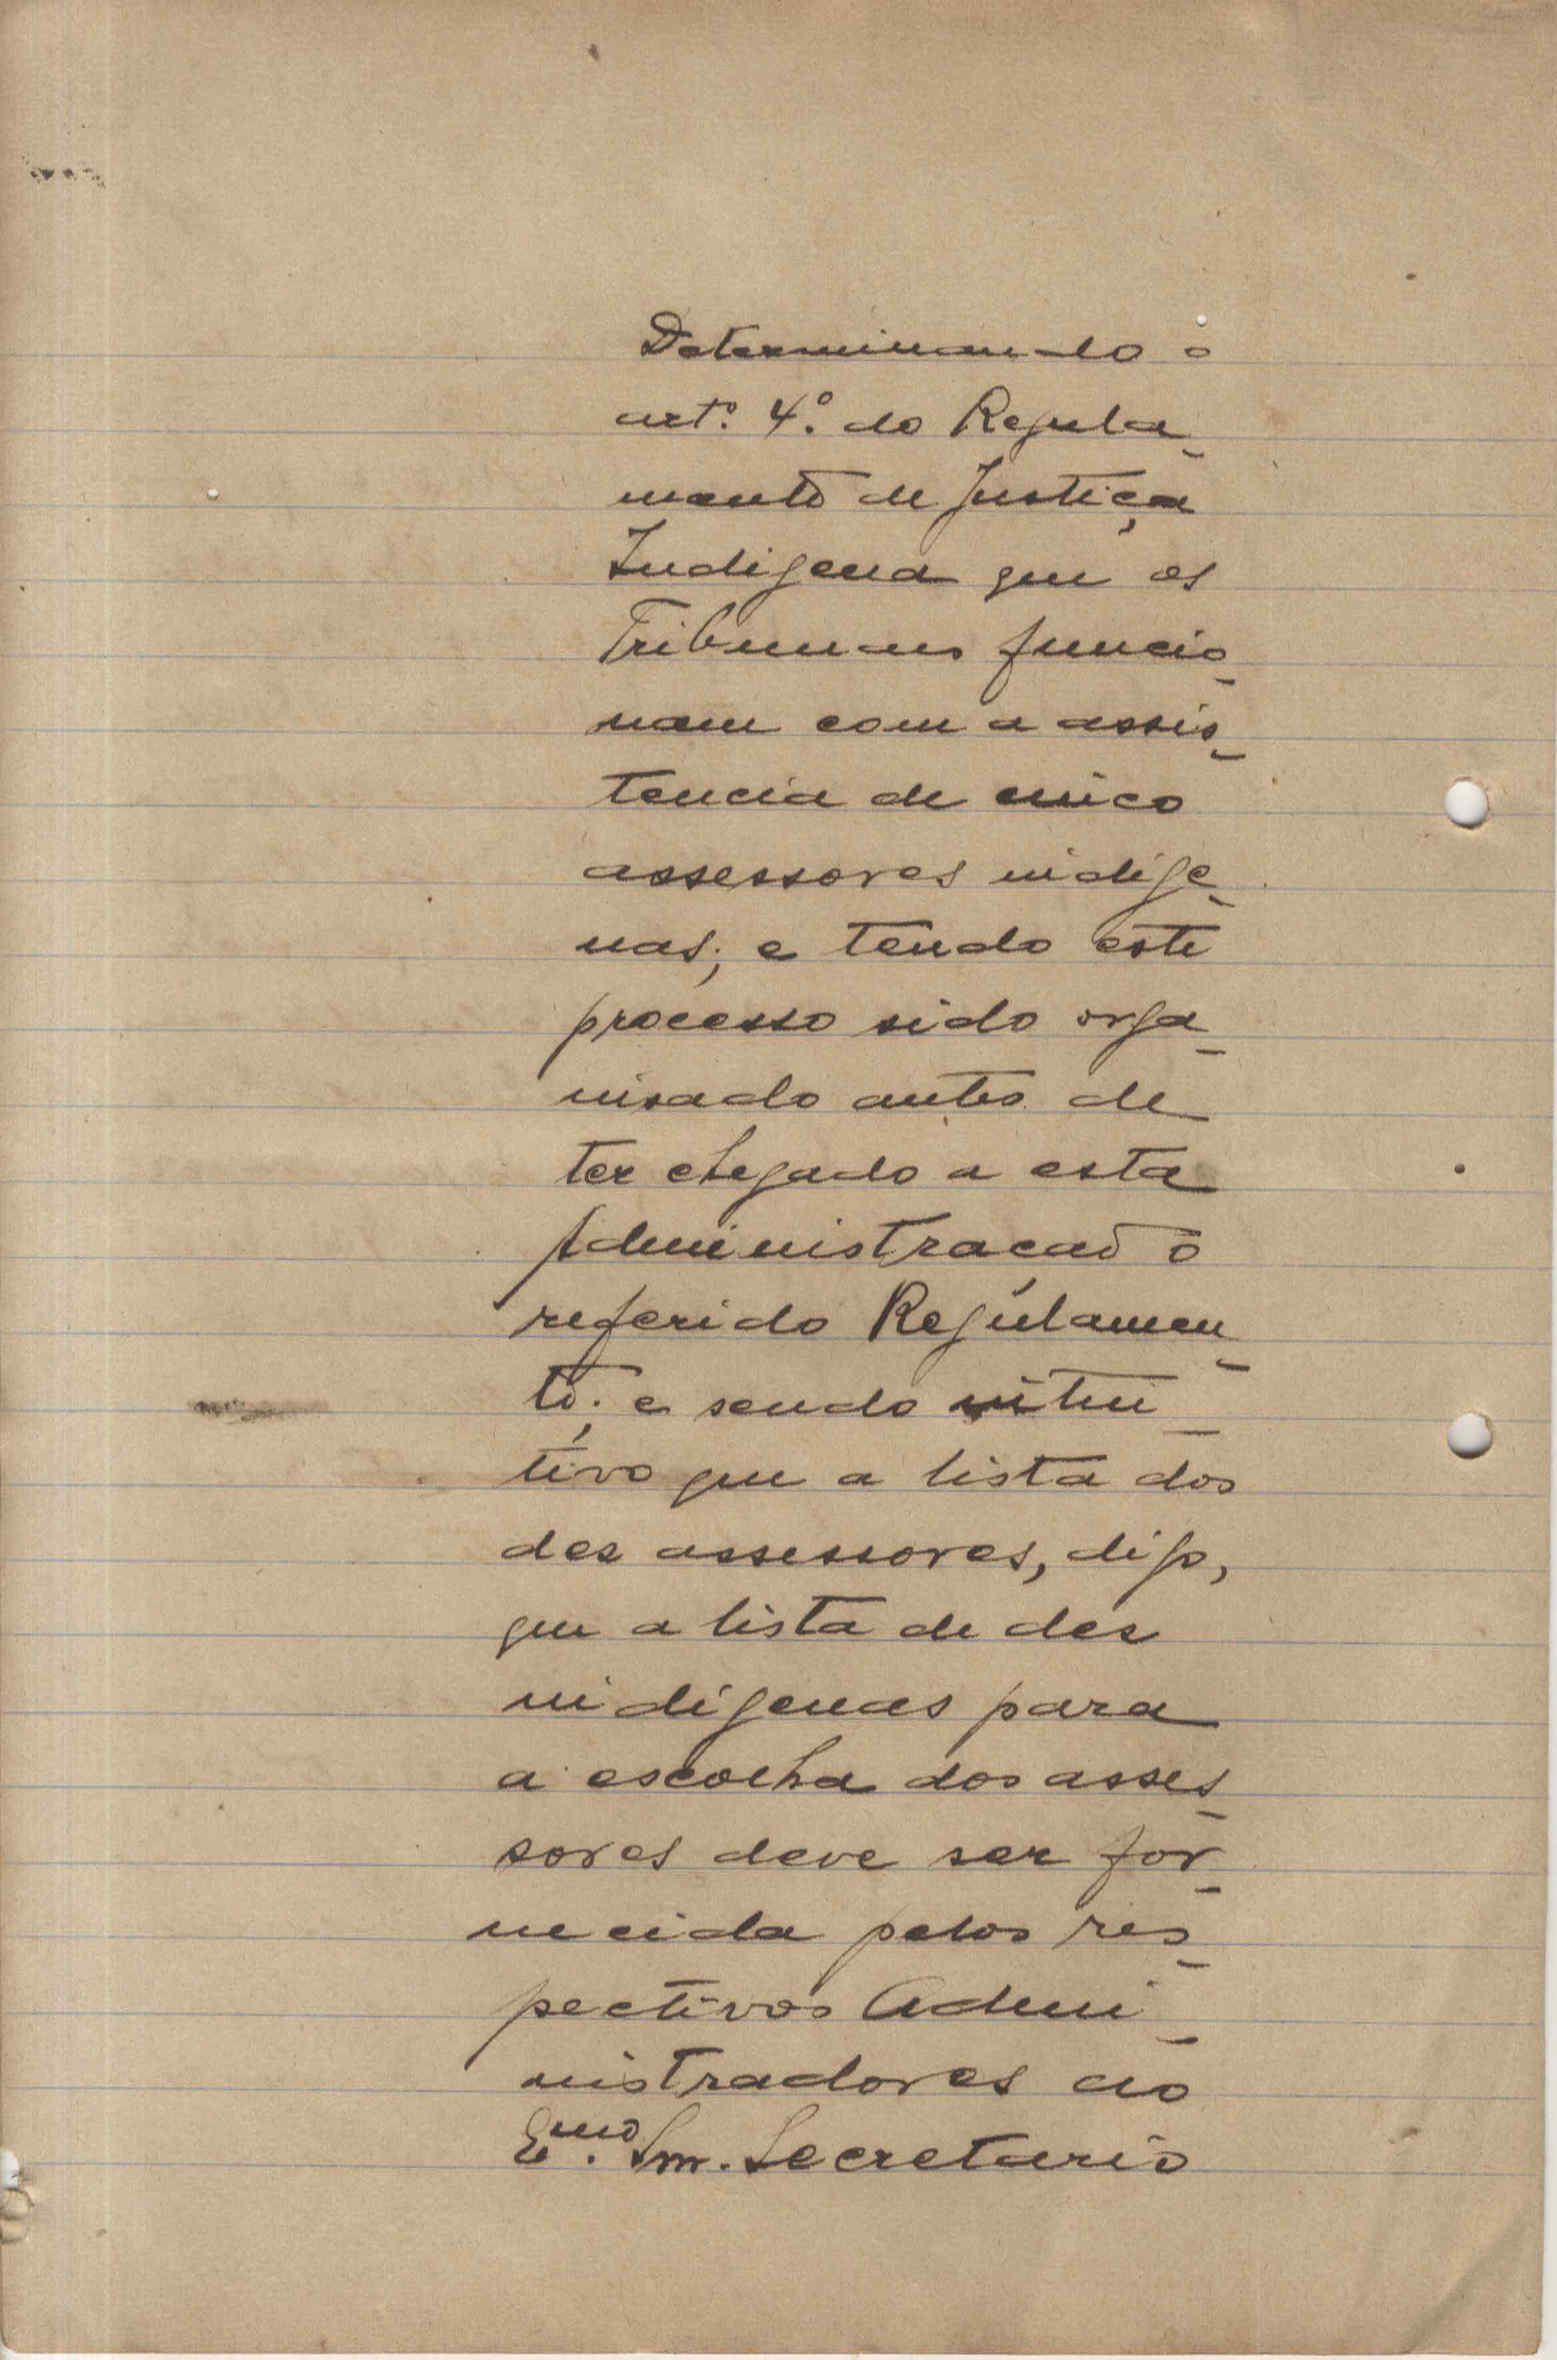 Determinando o
art.º 4.º do Regula-
mento de Justiça
Indigena que os
Tribunaes funcio-
nam com a assis-
tencia de cinco
assessores indige-
nas; e tendo este
processo sido orga-
nisado antes de
ter chegado a esta
Administracao o
referido Regulamen-
to; e sendo intui-
tivo que a lista dos
dez assessores, digo,
que a lista de dez
indigenas para
a escolha dos asses-
sores deve ser for-
necida pelos res-
pectivos Admi-
nistradores ao
Exmo. Snr. Secretario